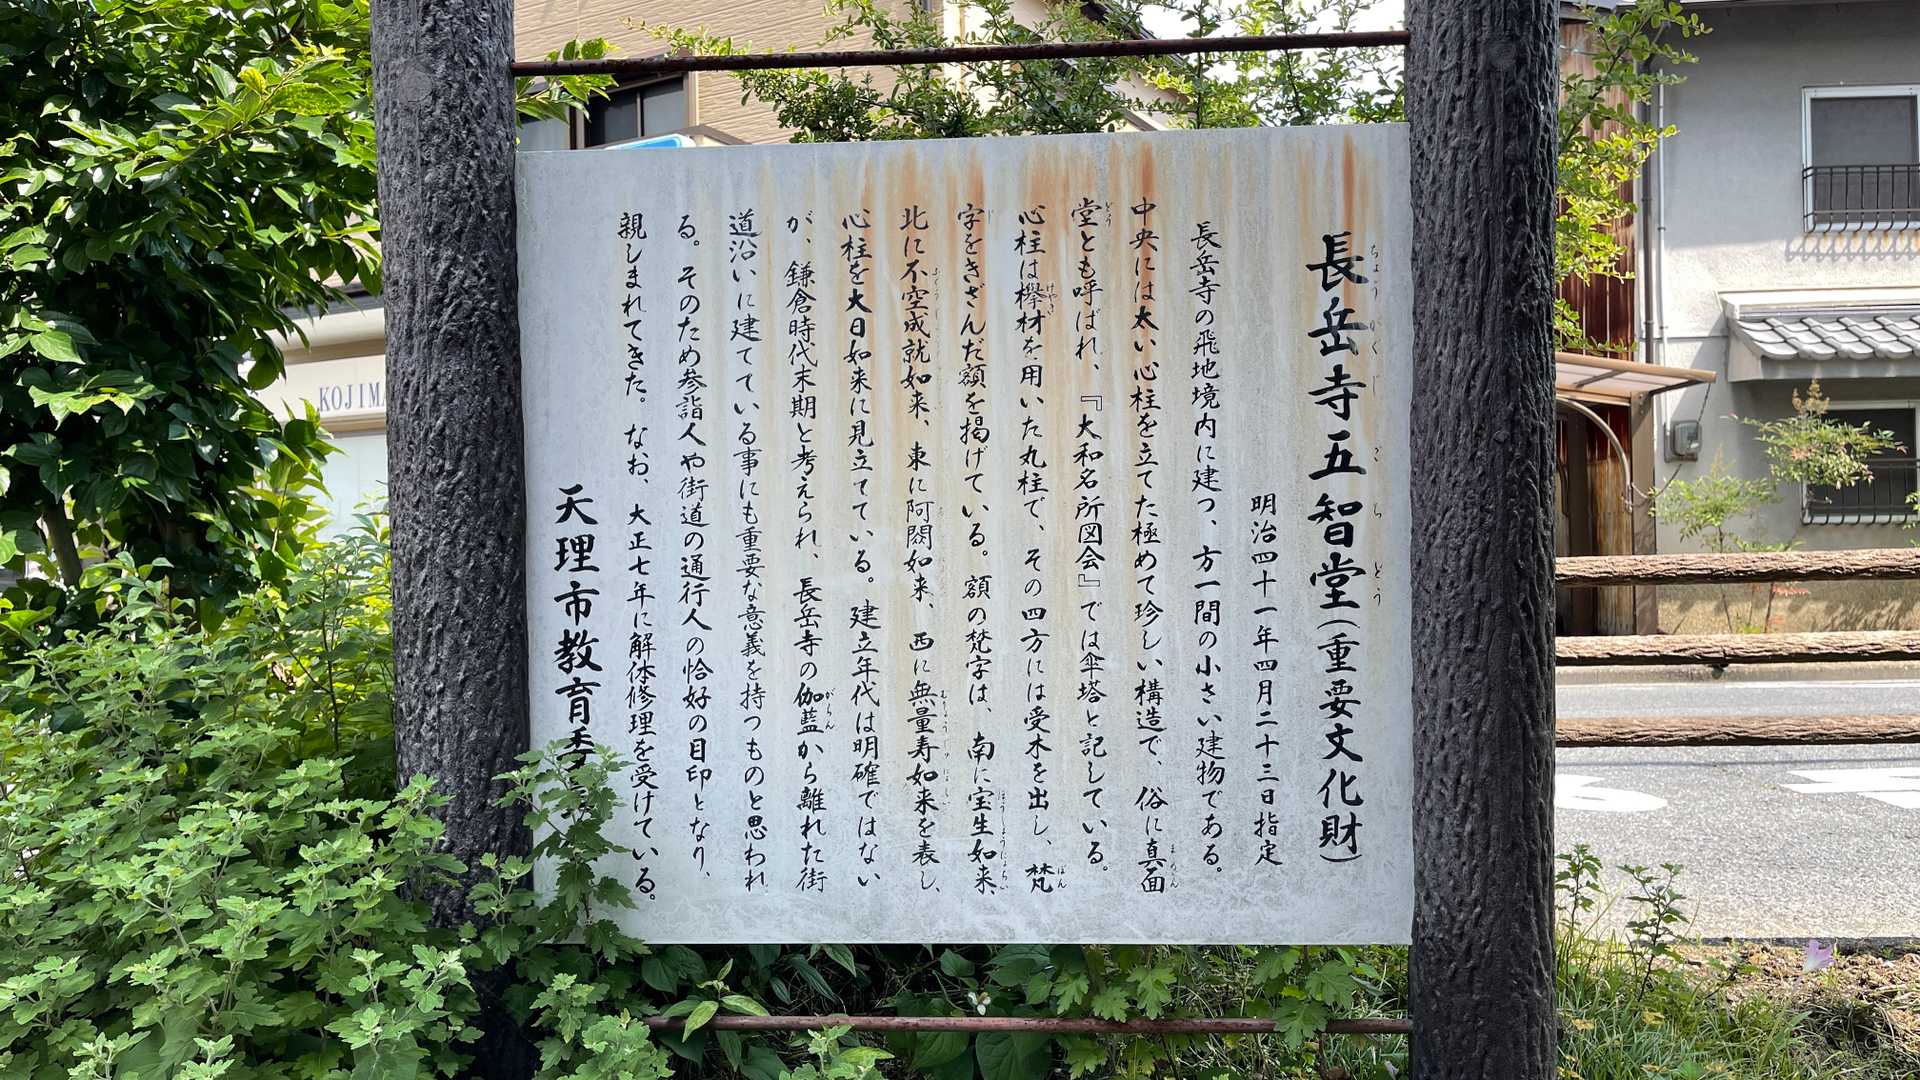 長岳寺五智堂(重要文化財)
明治四十一年四月二十三日指定
長岳寺の飛地境内に建つ、方一間の小さい建物である。
中央には太い心柱を立てた極めて珍しい構造で、俗に真面
堂とも呼ばれ、『大和名所図会』では傘塔と記している。
心柱は欅材を用いた丸柱で、その四方には受木を出し、梵
字をきざんだ額を掲げている。額の梵字は、南に宝生如来、
北に不空成就如来、東に阿閦如来、西に無量寿如来を表し、
心柱を大日如来に見立てている。建立年代は明確ではない
が、鎌倉時代末期と考えられ、長岳寺の伽藍から離れた街
道沿いに建てている事にも重要な意義を持つものと思われ
る。そのため参詣人や街道の通行人の恰好の目印となり、
親しまれてきた。なお、大正七年に解体修理を受けている。
天理市教育委
KOJIMA